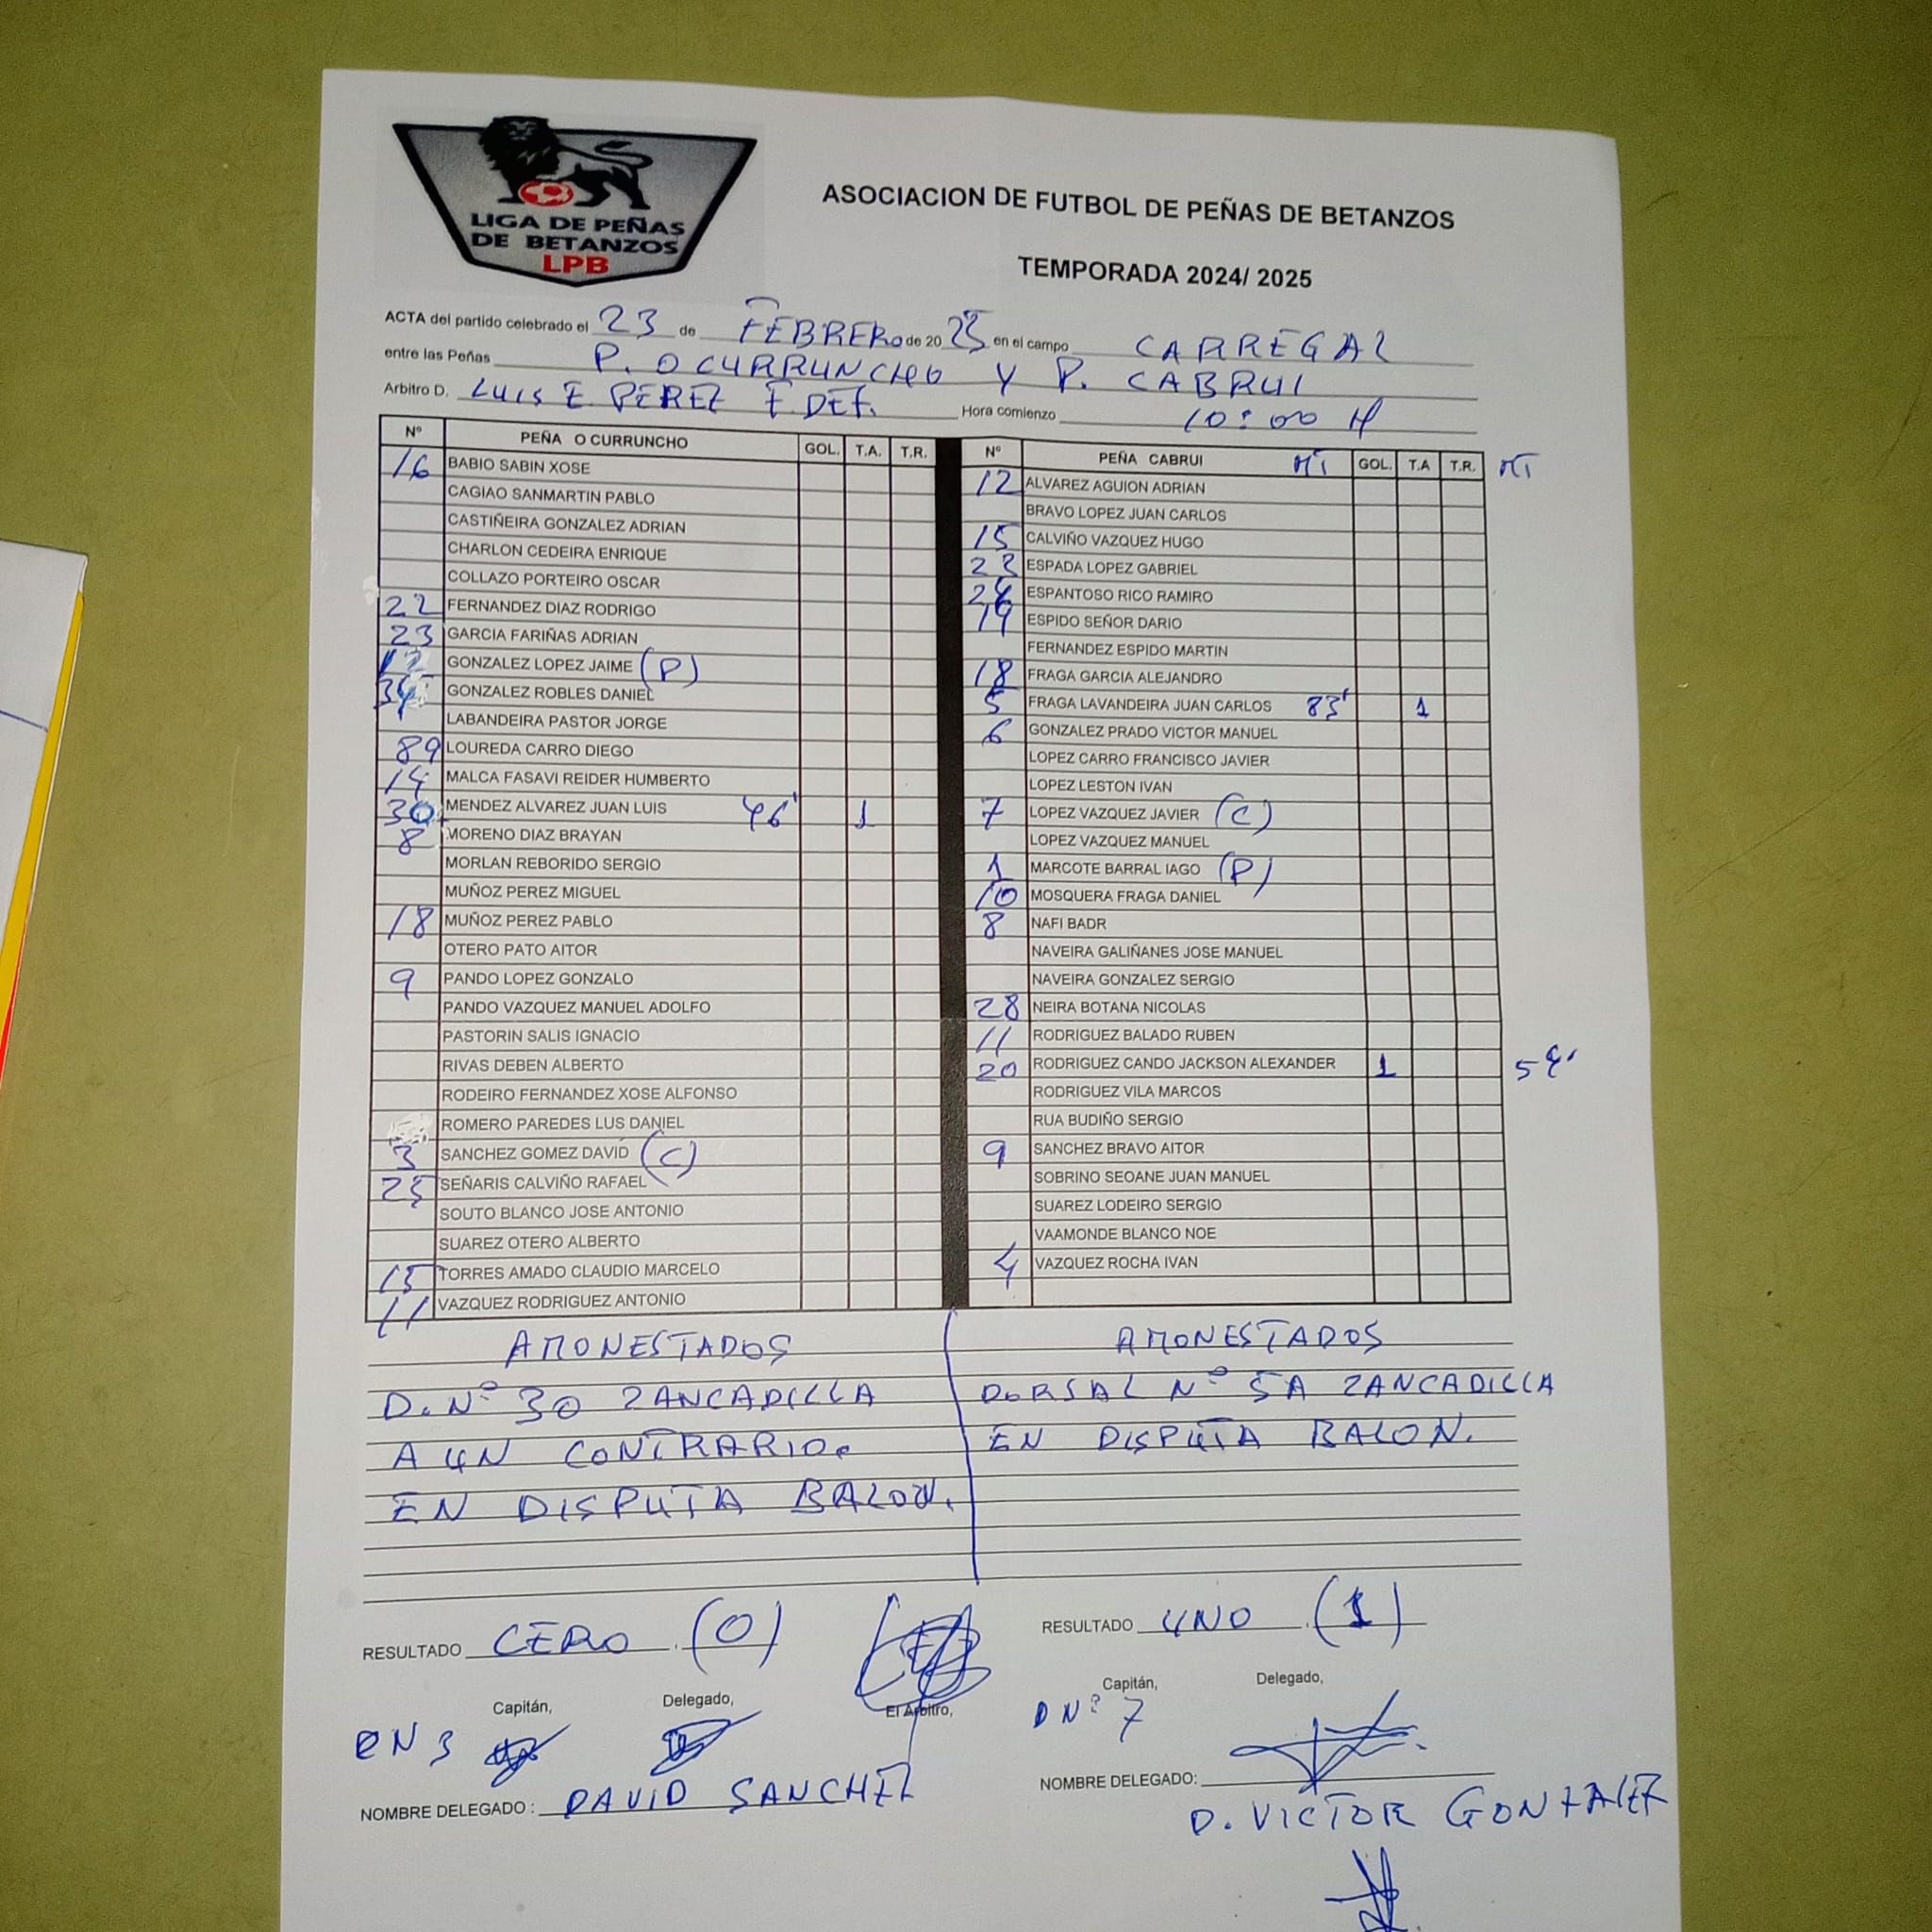 LIGA DE PEÑAS
DE BETANZOS
LPB
ASOCIACION DE FUTBOL DE PEÑAS DE BETANZOS
TEMPORADA 2024/ 2025
ACTA del partido celebrado el 23 de FEBRERO de 2025 en el campo CARREGAL
entre las Peñas P. O CURRUNCHO Y P. CABRUI
Arbitro D. LUIS E. PEREZ F. DEF. Hora comienzo 10:00 H
Nº PEÑA O CURRUNCHO GOL. T.A. T.R.
16 BABIO SABIN XOSE
CAGIAO SANMARTIN PABLO
CASTIÑEIRA GONZALEZ ADRIAN
CHARLON CEDEIRA ENRIQUE
COLLAZO PORTEIRO OSCAR
22 FERNANDEZ DIAZ RODRIGO
23 GARCIA FARIÑAS ADRIAN
GONZALEZ LOPEZ JAIME (P)
GONZALEZ ROBLES DANIEL
LABANDEIRA PASTOR JORGE
89 LOUREDA CARRO DIEGO
14 MALCA FASAVI REIDER HUMBERTO
30 MENDEZ ALVAREZ JUAN LUIS 46' 1
8 MORENO DIAZ BRAYAN
MORLAN REBORIDO SERGIO
MUÑOZ PEREZ MIGUEL
18 MUÑOZ PEREZ PABLO
OTERO PATO AITOR
9 PANDO LOPEZ GONZALO
PANDO VAZQUEZ MANUEL ADOLFO
PASTORIN SALIS IGNACIO
RIVAS DEBEN ALBERTO
RODEIRO FERNANDEZ XOSE ALFONSO
ROMERO PAREDES LUS DANIEL
3 SANCHEZ GOMEZ DAVID (C)
25 SEÑARIS CALVIÑO RAFAEL
SOUTO BLANCO JOSE ANTONIO
SUAREZ OTERO ALBERTO
15 TORRES AMADO CLAUDIO MARCELO
11 VAZQUEZ RODRIGUEZ ANTONIO
Nº PEÑA CABRUI MT GOL. T.A T.R. MT
12 ALVAREZ AGUION ADRIAN
BRAVO LOPEZ JUAN CARLOS
15 CALVIÑO VAZQUEZ HUGO
23 ESPADA LOPEZ GABRIEL
ESPANTOSO RICO RAMIRO
19 ESPIDO SEÑOR DARIO
FERNANDEZ ESPIDO MARTIN
18 FRAGA GARCIA ALEJANDRO
5 FRAGA LAVANDEIRA JUAN CARLOS 83' 1
6 GONZALEZ PRADO VICTOR MANUEL
LOPEZ CARRO FRANCISCO JAVIER
LOPEZ LESTON IVAN
7 LOPEZ VAZQUEZ JAVIER (C)
LOPEZ VAZQUEZ MANUEL
1 MARCOTE BARRAL IAGO (P)
10 MOSQUERA FRAGA DANIEL
8 NAFI BADR
NAVEIRA GALIÑANES JOSE MANUEL
NAVEIRA GONZALEZ SERGIO
28 NEIRA BOTANA NICOLAS
11 RODRIGUEZ BALADO RUBEN
20 RODRIGUEZ CANDO JACKSON ALEXANDER 1
RODRIGUEZ VILA MARCOS
RUA BUDIÑO SERGIO
9 SANCHEZ BRAVO AITOR
SOBRINO SEOANE JUAN MANUEL
SUAREZ LODEIRO SERGIO
VAAMONDE BLANCO NOE
4 VAZQUEZ ROCHA IVAN
AMONESTADOS
D. Nº 30 ZANCADILLA
A UN CONTRARIO.
EN DISPUTA BALON.
AMONESTADOS
DORSAL Nº 5A ZANCADILLA
EN DISPUTA BALON.
RESULTADO CERO (0)
RESULTADO UNO (1)
Capitán, Delegado, El Arbitro,
Capitán, Delegado,
N 3
D Nº 7
NOMBRE DELEGADO : DAVID SANCHEZ
NOMBRE DELEGADO:
D. VICTOR GONZALEZ